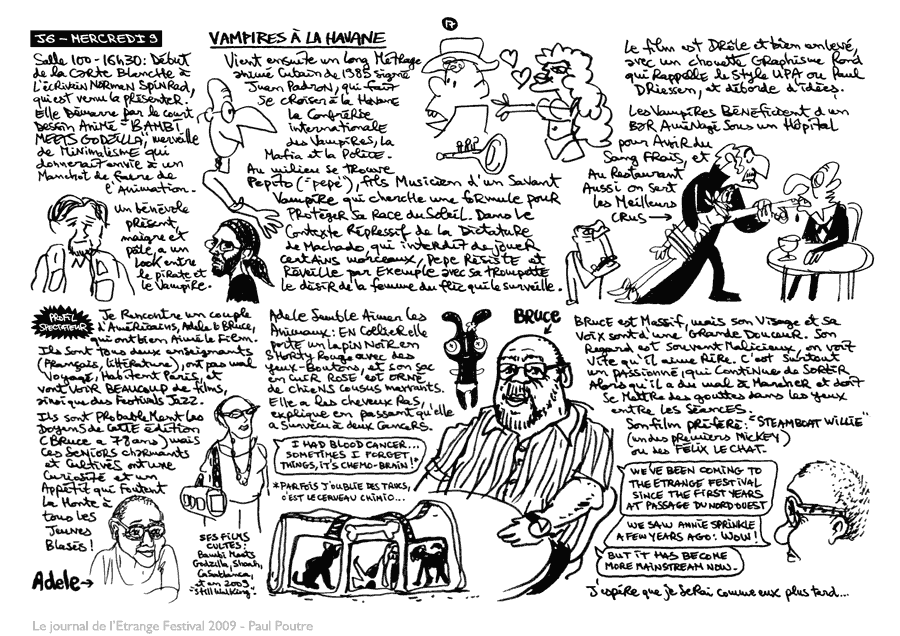 17
J6 - MERCREDI 9
Salle 100 - 16h30: Début
de la Carte Blanche à
l'écrivain NORMAN SPINRAD,
qui est venu la présenter.
Elle démarre par le court
dessin animé "BAMBI
MEETS GODZILLA", merveille
de minimalisme qui
donnerait envie à un
manchot de faire de
l'animation.
un bénévole
présent,
maigre et
pâle, a un
look entre
le pirate et
le vampire.
VAMPIRES À LA HAVANE
Vient ensuite un long métrage
animé cubain de 1985 signé
Juan Padron, qui fait
se croiser à la Havane
la confrérie
internationale
des vampires, la
mafia et la police.
Au milieu se trouve
Pepito (-"pepe"), fils musicien d'un savant
vampire qui cherche une formule pour
protéger sa race du soleil. Dans le
contexte répressif de la dictature
de Machado, qui interdit de jouer
certains morceaux, Pepe résiste et
réveille par exemple avec sa trompette
le désir de la femme du flic qui le surveille.
Le film est drôle et bien enlevé,
avec un chouette graphisme rond
qui rappelle le style UPA ou Paul
Driessen, et déborde d'idées.
Les vampires bénéficient d'un
bar aminagé sous un hôpital
pour avoir du
sang frais, et
au restaurant
aussi on sert
les meilleurs
crus →
PROFIL
SPECTATEUR
Je rencontre un couple
d'Américains, Adele & Bruce,
qui ont bien aimé le film.
Ils sont tous deux enseignants
(Français, littérature), ont pas mal
voyagé, habitent Paris, et
vont voir BEAUCOUP de films,
ainsi que des festivals Jazz.
Ils sont probablement les
doyens de cette édition
(Bruce a 77 ans) mais
ces seniors charmants
et cultivés ont une
curiosité et un
appétit qui foutent
la honte à
tous les
jeunes
blasés!
Adele →
SES FILMS
CULTES:
Bambi Meets
Godzilla, Shoah,
Casablanca,
et en 2009
"Still Walking".
Adele semble aimer les
animaux: en collier elle
porte un lapin noir en
shorty rouge avec des
yeux-boutons, et son sac
en cuir rose est orné
de chiens cousus marrants.
Elle a les cheveux ras,
explique en passant qu'elle
a survécu à deux cancers.
I HAD BLOOD CANCER...
SOMETIMES I FORGET
THINGS, IT'S CHEMO-BRAIN!*
*PARFOIS J'OUBLIE DES TRUCS,
C'EST LE CERVEAU CHIMIO...
BRUCE
Bruce est massif, mais son visage et sa
voix sont d'une grande douceur. Son
regard est souvent malicieux, on voit
vite qu'il aime rire. C'est surtout
un passionné, qui continue de sortir
alors qu'il a du mal à marcher et doit
se mettre des gouttes dans les yeux
entre les séances.
Son film préféré: "STEAMBOAT WILLIE"
(un des premiers MICKEY)
ou les FELIX LE CHAT.
WE'VE BEEN COMING TO
THE ETRANGE FESTIVAL
SINCE THE FIRST YEARS
AT PASSAGE DU NORD OUEST
WE SAW ANNIE SPRINKLE
A FEW YEARS AGO: WOW!
BUT IT HAS BECOME
MORE MAINSTREAM NOW..
J'espère que je serai comme eux plus tard...
Le journal de l'Etrange Festival 2009 - Paul Poutre